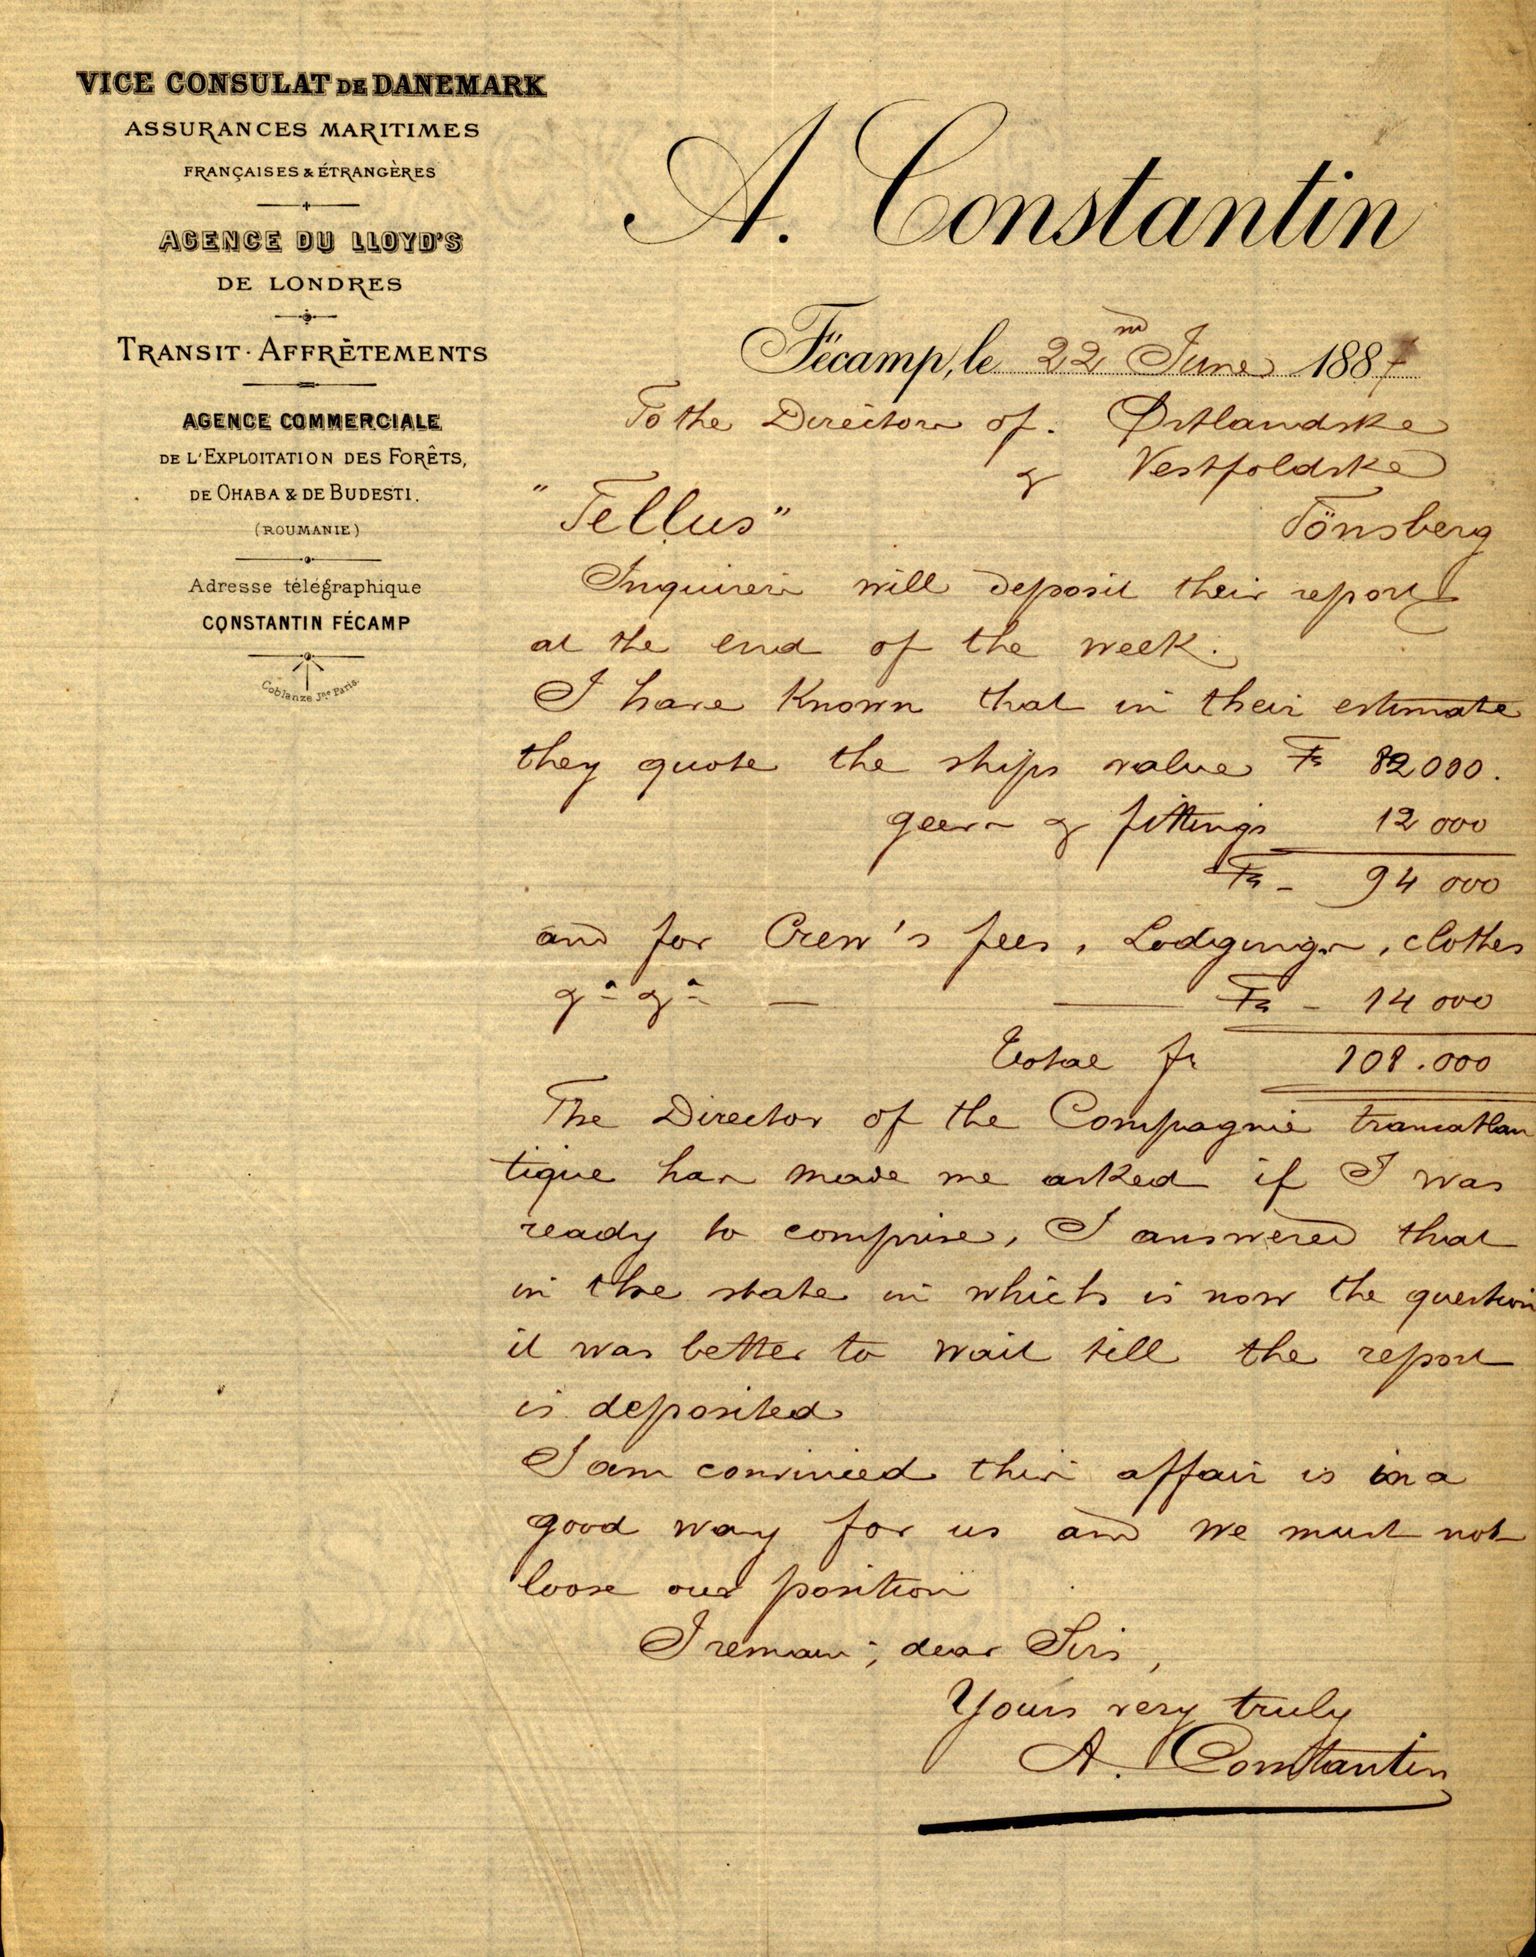 VICE CONSULAT DE DANEMARK
ASSURANCES MARITIMES
FRANÇAISES & ÉTRANGÈRES
AGENCE DU LLOYD'S
DE LONDRES
TRANSIT · AFFRÈTEMENTS
AGENCE COMMERCIALE
DE L'EXPLOITATION DES FORÊTS,
DE OHABA & DE BUDESTI.
(ROUMANIE)
Adresse télégraphique
CONSTANTIN FÉCAMP
Coblanze Jne Paris.
A. Constantin
Fécamp, le 22nd June 1887
To the Directors of. Østlandske
& Vestfoldske
"Tellus" Tönsberg
Inquirers will deposit their report
at the end of the week.
I have Known that in their estimate
they quote the ships value Fs 82000.
geers & fittings 12 000
Fs - 94 000
and for Crew's fees, Lodgings, clothes
&a &a — — Fs - 14 000
Total fr 108.000
The Director of the Compagnie transatlan
tique has made me asked if I was
ready to comprise, I answered that
in the state in which is now the question
it was better to wait till the report
is deposited
I am convinied this affair is in a
good way for us and we must not
loose our position
I remain, dear Sirs,
Yours very truly
A. Constantin